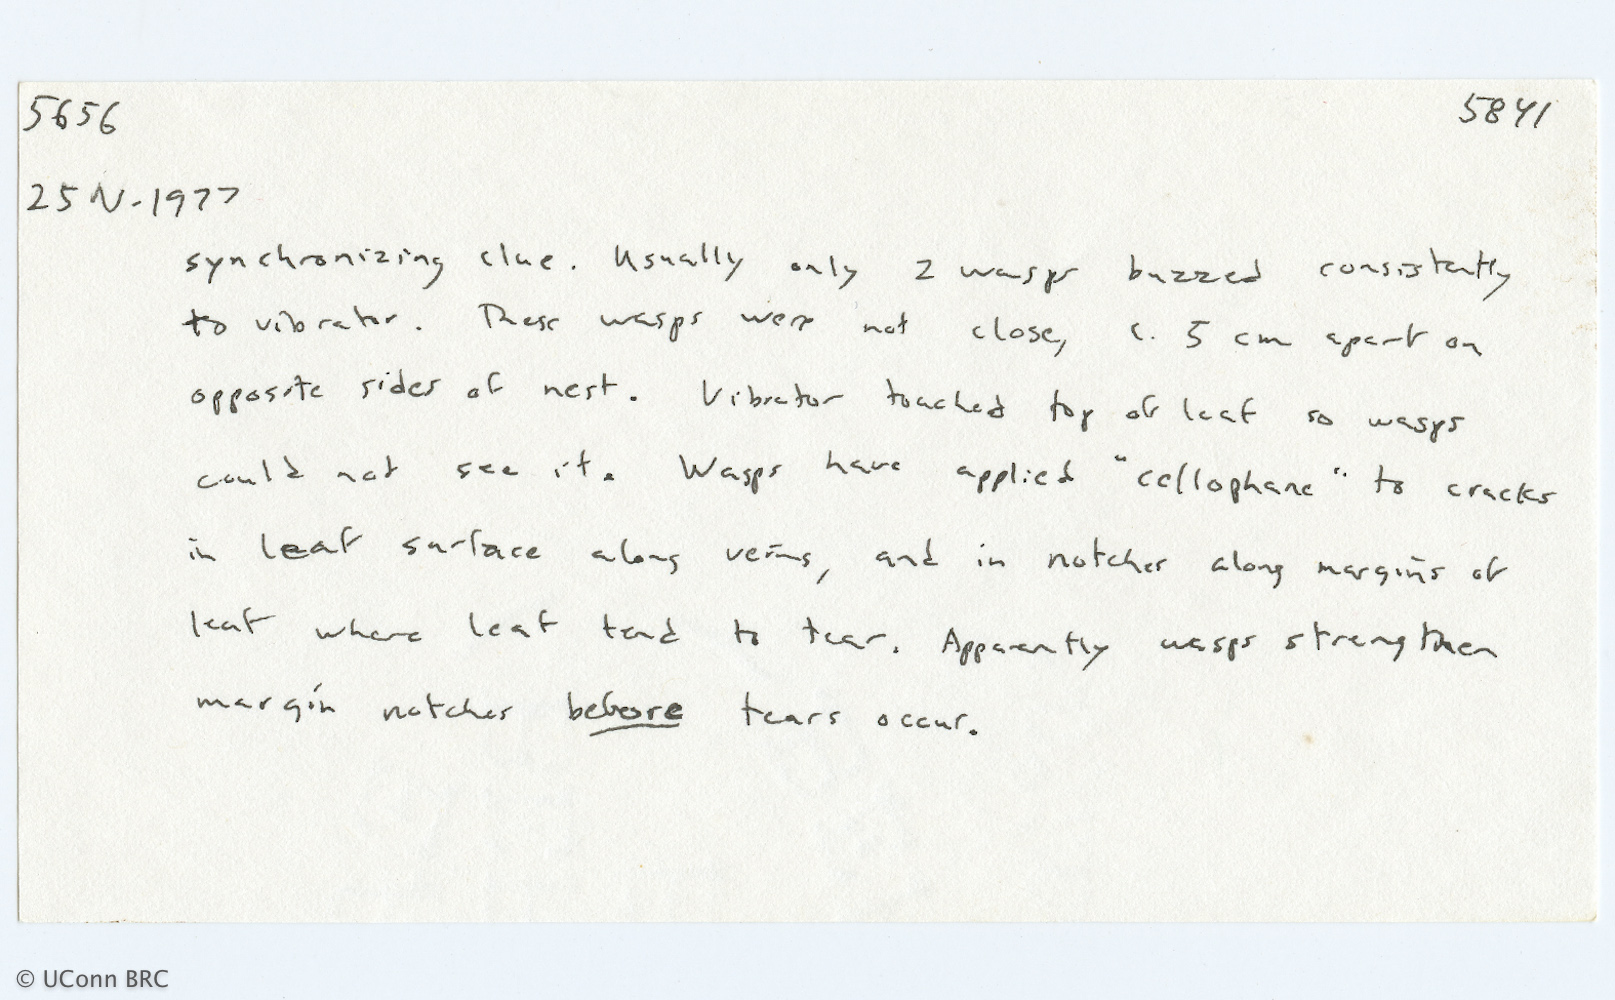 5656 5841
25 IV-1977
synchronizing clue. Usually only 2 wasps buzzed consistently
to vibrator. These wasps were not close, c. 5 cm apart on
opposite sides of nest. Vibrator touched top of leaf so wasps
could not see it. Wasps have applied "cellophane" to cracks
in leaf surface along veins, and in notches along margins of
leaf where leaf tend to tear. Apparently wasps strengthen
margin notches before tears occur.
© UConn BRC